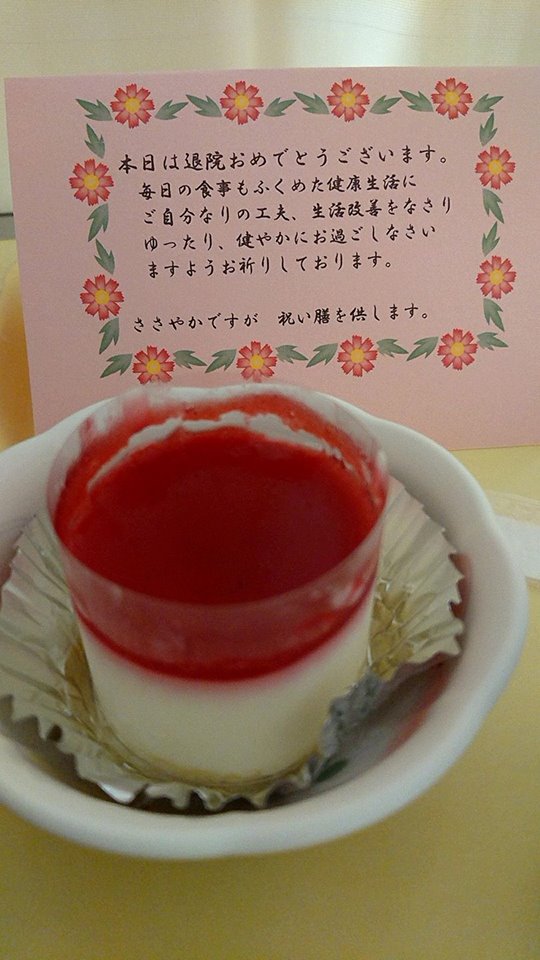 本日は退院おめでとうございます。
毎日の食事もふくめた健康生活に
ご自分なりの工夫、生活改善をなさり
ゆったり、健やかにお過ごしなさい
ますようお祈りしております。
ささやかですが　祝い膳を供します。